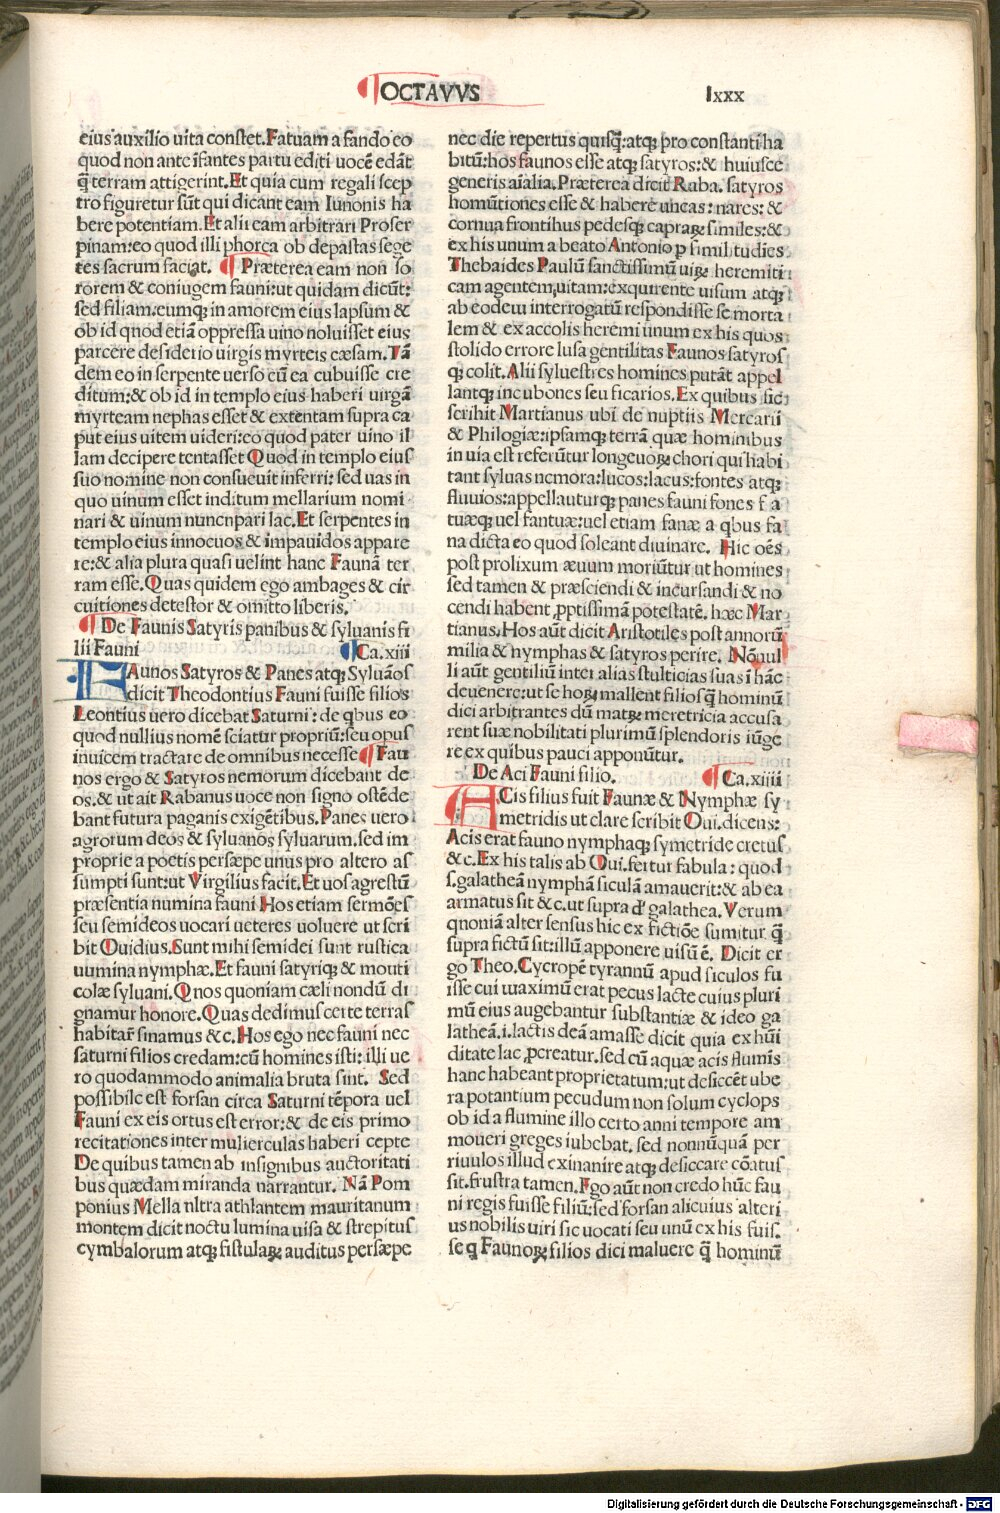 OCTAVVS
lxxx
eius auxilio uita constet. Fatuam a fando eo
quod non ante ĩfantes partu editi uocẽ edãt
q̃ terram attigerint. Et quia cum regali scep
tro figuretur sũt qui dicant eam Iunonis ha
bere potentiam. Et alii eam arbitrari Proser
pinam: eo quod illi phorca ob depastas sege
tes sacrum faciat. ¶ Præterea eam non so
rorem & coniugem fauni: ut quidam dicũt:
sed filiam: eumqꝫ in amorem eius lapsum &
ob id qnod etiã oppressa uino noluisset eius
parcere desiderio uirgis myrteis cæsam. Tã
dem eo in serpente uerso cũ ea cubuisse cre
ditum: & ob id in templo eius haberi uirgã
myrteam nephas esset & extentam supra ca
put eius uitem uideri: eo quod pater uino il
lam decipere tentasset Quod in templo eius
suo nomine non consueuit inferri: sed uas in
quo uinum esset inditum mellarium nomi
nari & uinum nuncupari lac. Et serpentes in
templo eius innocuos & impauidos appare
re: & alia plura quasi uelint hanc Faunã ter
ram esse. Quas quidem ego ambages & cir
cuitiones detestor & omitto liberis.
¶ De Faunis Satyris panibus & syluanis fi
lii Fauni ¶ Ca. xiii
FAunos Satyros & Panes atqꝫ Syluãos
dicit Theodontius Fauni fuisse filios
Leontius uero dicebat Saturni: de qbus eo
quod nullius nomẽ sciatur propriũ: seu opus
inuicem tractare de omnibus necesse ¶ Fau
nos ergo & Satyros nemorum dicebant de
os. & ut ait Rabanus uoce non signo ostẽde
bant futura paganis exigẽtibus. Panes uero
agrorum deos & syluanos syluarum. sed im
proprie a poetis persæpe unus pro altero as
sumpti sunt: ut Virgilius facit. Et uos agrestũ
præsentia numina fauni Hos etiam sermões
seu semideos uocari ueteres uoluere ut scri
bit Ouidius. Sunt mihi semidei sunt rustica
uumina nymphæ. Et fauni satyriqꝫ & mouti
colæ syluani. Qnos quoniam cæli nondũ di
gnamur honore. Quas dedimus certe terras
habitar̃ sinamus &c. Hos ego nec fauni nec
saturni filios credam: cũ homines isti: illi ue
ro quodammodo animalia bruta sint. Sed
possibile est forsan circa Saturni tẽpora uel
Fauni ex eis ortus est error: & de eis primo
recitationes inter mulierculas haberi cepte
De quibus tamen ab insignibus auctoritati
bus quædam miranda narrantur. Nã Pom
ponius Mella nltra athlantem mauritanum
montem dicit noctu lumina uisa & strepitus
cymbalorum atqꝫ fistulaꝝ auditus persæpe
nec die repertus quisq̃: atqꝫ pro constanti ha
bitũ: hos faunos esse atqꝫ satyros: & huiusce
generis aĩalia. Præterea dicit Raba. satyros
homũtiones esse & habere uncas: nares: &
cornua frontihus pedesqꝫ capraꝝ similes: &
ex his unum a beato Antonio p similitudies
Thebaides Paulũ sanctissimũ uiꝝ heremiti
cam agentem, uitam: exquirente uisum atqꝫ
ab eodem interrogatũ respondisse se morta
lem & ex accolis heremi unum ex his quos
stolido errore lusa gentilitas Faunos satyros
qꝫ colit. Alii syluestres homines putãt appel
lantqꝫ incubones seu ficarios. Ex quibus sic
scrihit Martianus ubi de nuptiis Mercarii
& Philogiæ: ipsamqꝫ terrã quæ hominibus
in uia est referũtur longeuoꝝ chori qui habi
tant syluas nemora: lucos: lacus: fontes atqꝫ
fluuios: appellauturqꝫ panes fauni fones f a
tuæqꝫ uel fantuæ: uel etiam fanæ a qbus fa
na dicta eo quod soleant diuinare. Hic oẽs
post prolixum æuum moriũtur ut homines
sed tamen & præsciendi & incursandi & no
cendi habent ꝓptissimã potestatẽ. hæc Mar
tianus. Hos aũt dicit Aristotiles post annorũ
milia & nymphas & satyros perire. Nõnul
li aũt gentiliũ inter alias stulticias suas ĩ hãc
deuenere: ut se hoꝝ mallent filios q̃ hominũ
dici arbitrantes dũ matꝝ meretricia accusa
rent suæ nobilitati plurimũ splendoris iũge
re ex quibus pauci apponũtur.
De Aci Fauni filio. ¶ Ca. xiiii
ACis filius fuit Faunæ & Nymphæ sy
metridis ut clare scribit Oui. dicens:
Acis erat fauno nymphaqꝫ symetride cretus
&c. Ex his talis ab Oui. fertur fabula: quod
s. galatheã nymphã siculã amauerit: & ab ea
armatus sit &c. ut supra d' galathea. Verum
qnoniã alter sensus hic ex fictiõe sumitur q̃
supra fictũ sit: illũ apponere uisũ ẽ. Dicit er
go Theo. Cycropẽ tyrannũ apud siculos fu
isse cui uaximũ erat pecus lacte cuius pluri
mũ eius augebantur substantiæ & ideo ga
latheã. i. lactis deã amasse dicit quia ex hũi
ditate lac ꝓcreatur. sed cũ aquæ acis flumĩs
hanc habeant proprietatum: ut desiccẽt ube
ra potantium pecudum non solum cyclops
ob id a flumine illo certo anni tempore am
moueri greges iubebat. sed nonnũquã per
riuulos illud exinanire atqꝫ desiccare cõatus
sit. frustra tamen. Ego aũt non credo hũc fau
ni regis fuisse filiũ: sed forsan alicuius alteri
us nobilis uiri sic uocati seu unũ ex his fuis.
se q Faunoꝝ filios dici maluere q̃ hominũ
Digitalisierung gefördert durch die Deutsche Forschungsgemeinschaft - DFG